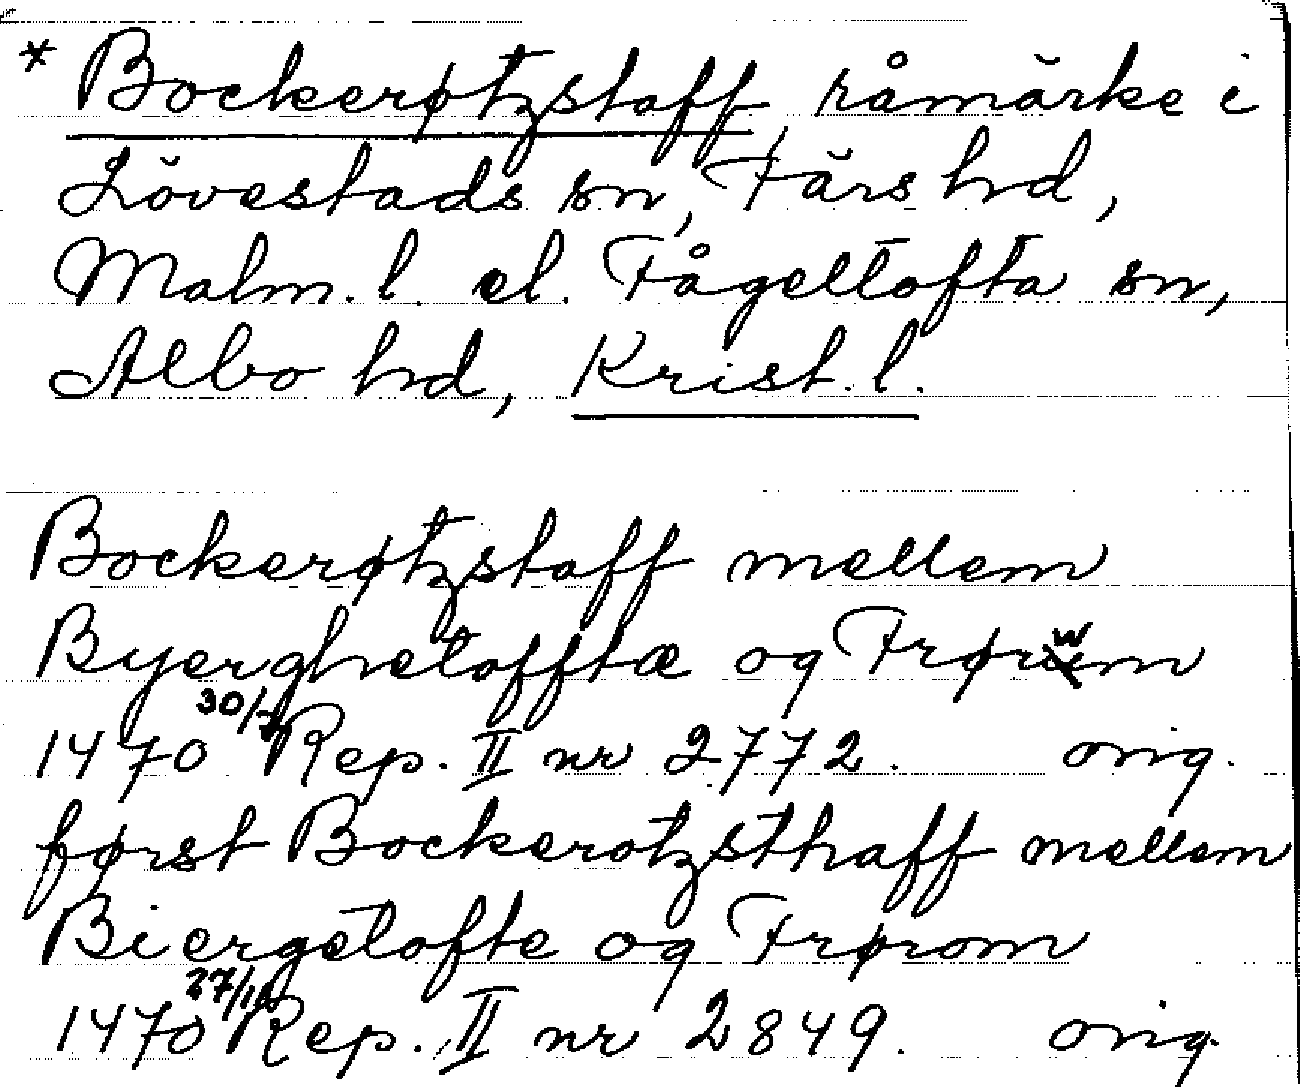 * Bockerøtzstaff, råmärke i
Lövestads sn, Färs hd,
Malm. l. el. Fågeltofta sn,
Albo hd, Krist. l.
Bockerøtzstaff mellem
Byerghetofftæ og Frørwm
1470 30/7 Rep. II nr 2772. orig.
først Bockerotzsthaff mellem
Biergetofte og Frørom
1470 27/11 Rep. II nr 2849. orig.